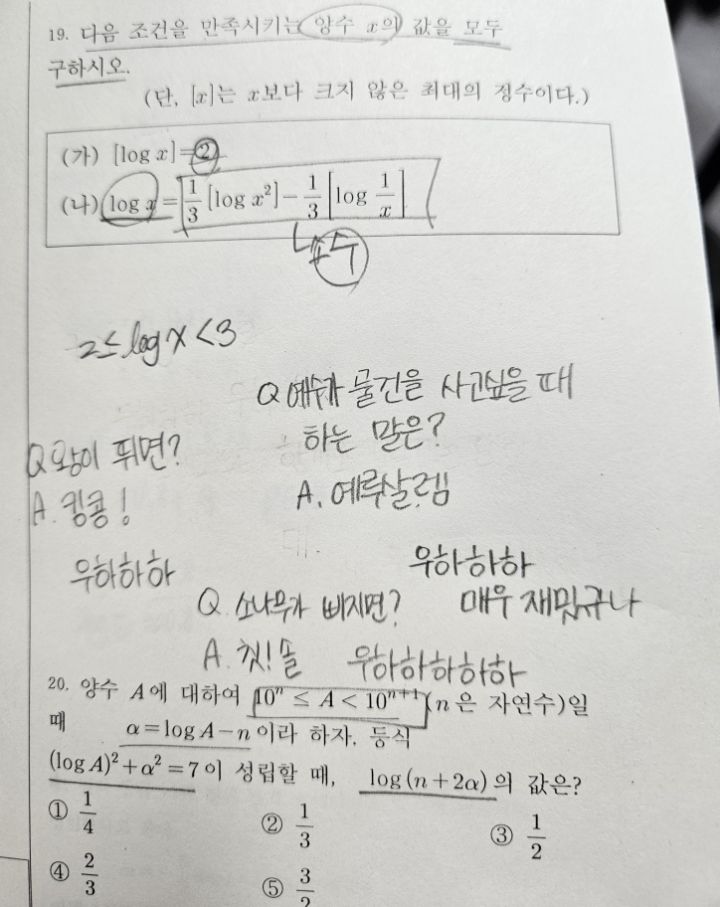 19. 다음 조건을 만족시키는 양수 x의 값을 모두
구하시오.
(단, [x]는 x보다 크지 않은 최대의 정수이다.)
(가) [log x]=2
(나) log x = 1/3 [log x²] − 1/3 [log 1/x]
2≤log x<3
Q 예수가 물건을 사고싶을 때
하는 말은?
A. 예루살렘
Q 왕이 뛰면?
A. 킹콩!
우하하하
우하하하
매우 재밌규나
Q. 소나무가 삐지면?
A. 칫!솔
우하하하하하
20. 양수 A에 대하여 10ⁿ ≤ A < 10ⁿ⁺¹ (n은 자연수)일
때 α=log A−n이라 하자. 등식
(log A)²+α²=7이 성립할 때, log(n+2α)의 값은?
① 1/4 ② 1/3 ③ 1/2
④ 2/3 ⑤ 3/2